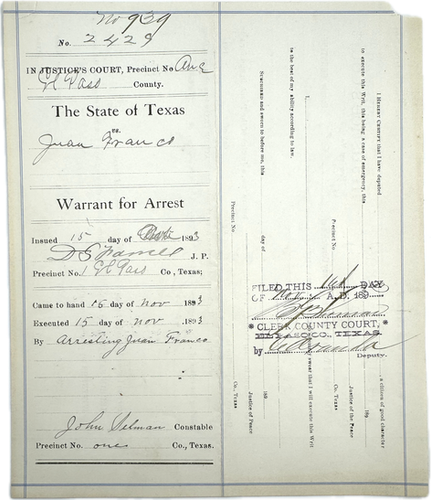 No 939
No. 2429
IN JUSTICE'S COURT, Precinct No One
El Paso County.
The State of Texas
vs.
Juan Franco
Warrant for Arrest
Issued 15 day of 1893
J. P.
Precinct No. 1 El Paso Co., Texas;
Came to hand 15 day of Nov 1893
Executed 15 day of Nov 1893
By Arresting Juan Franco
John Selman Constable
Precinct No. one Co., Texas.
I HEREBY CERTIFY that I have deputed
a citizen of good character
to execute this Writ, this being a case of emergency, this
189
Justice of the Peace
Precinct No. Co., Texas
swear that I will execute this Writ
to the best of my ability according to law.
Sworn to and subscribed before me, this day of
189
Justice of Peace
Precinct No. Co., Texas
FILED THIS 16 DAY
OF Nov A. D. 189
CLERK COUNTY COURT,
EL PASO CO., TEXAS.
by
Deputy.